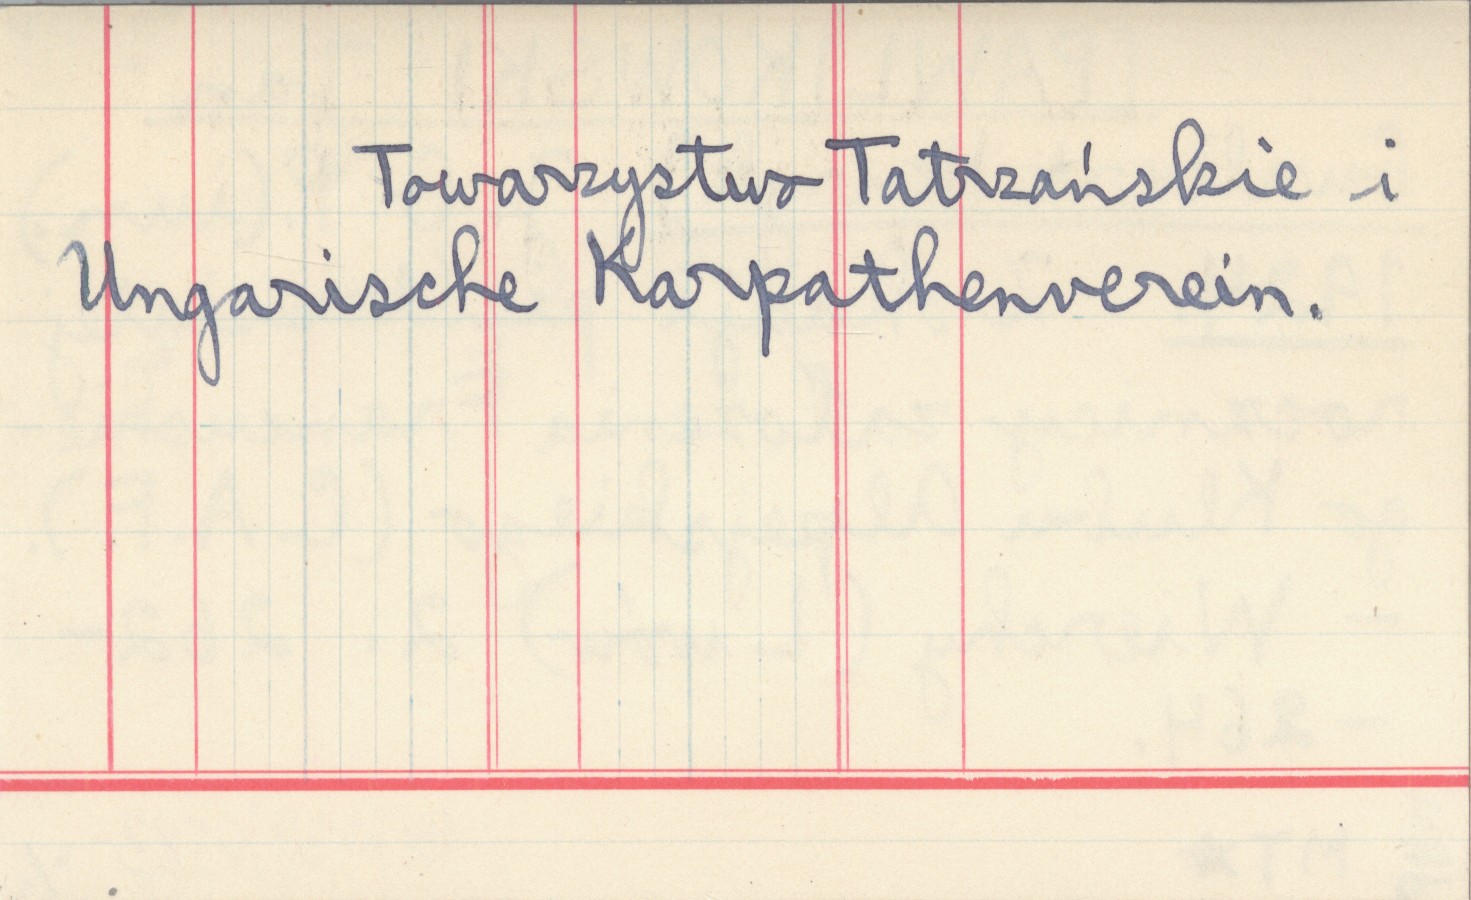 Towarzystwo Tatrzańskie i
Ungarische Karpathenverein.